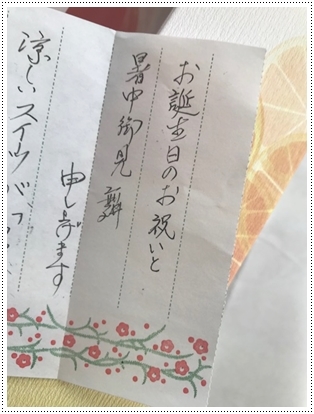 お誕生日のお祝いと
暑中御見舞
申し上げます
涼しいスイーツが